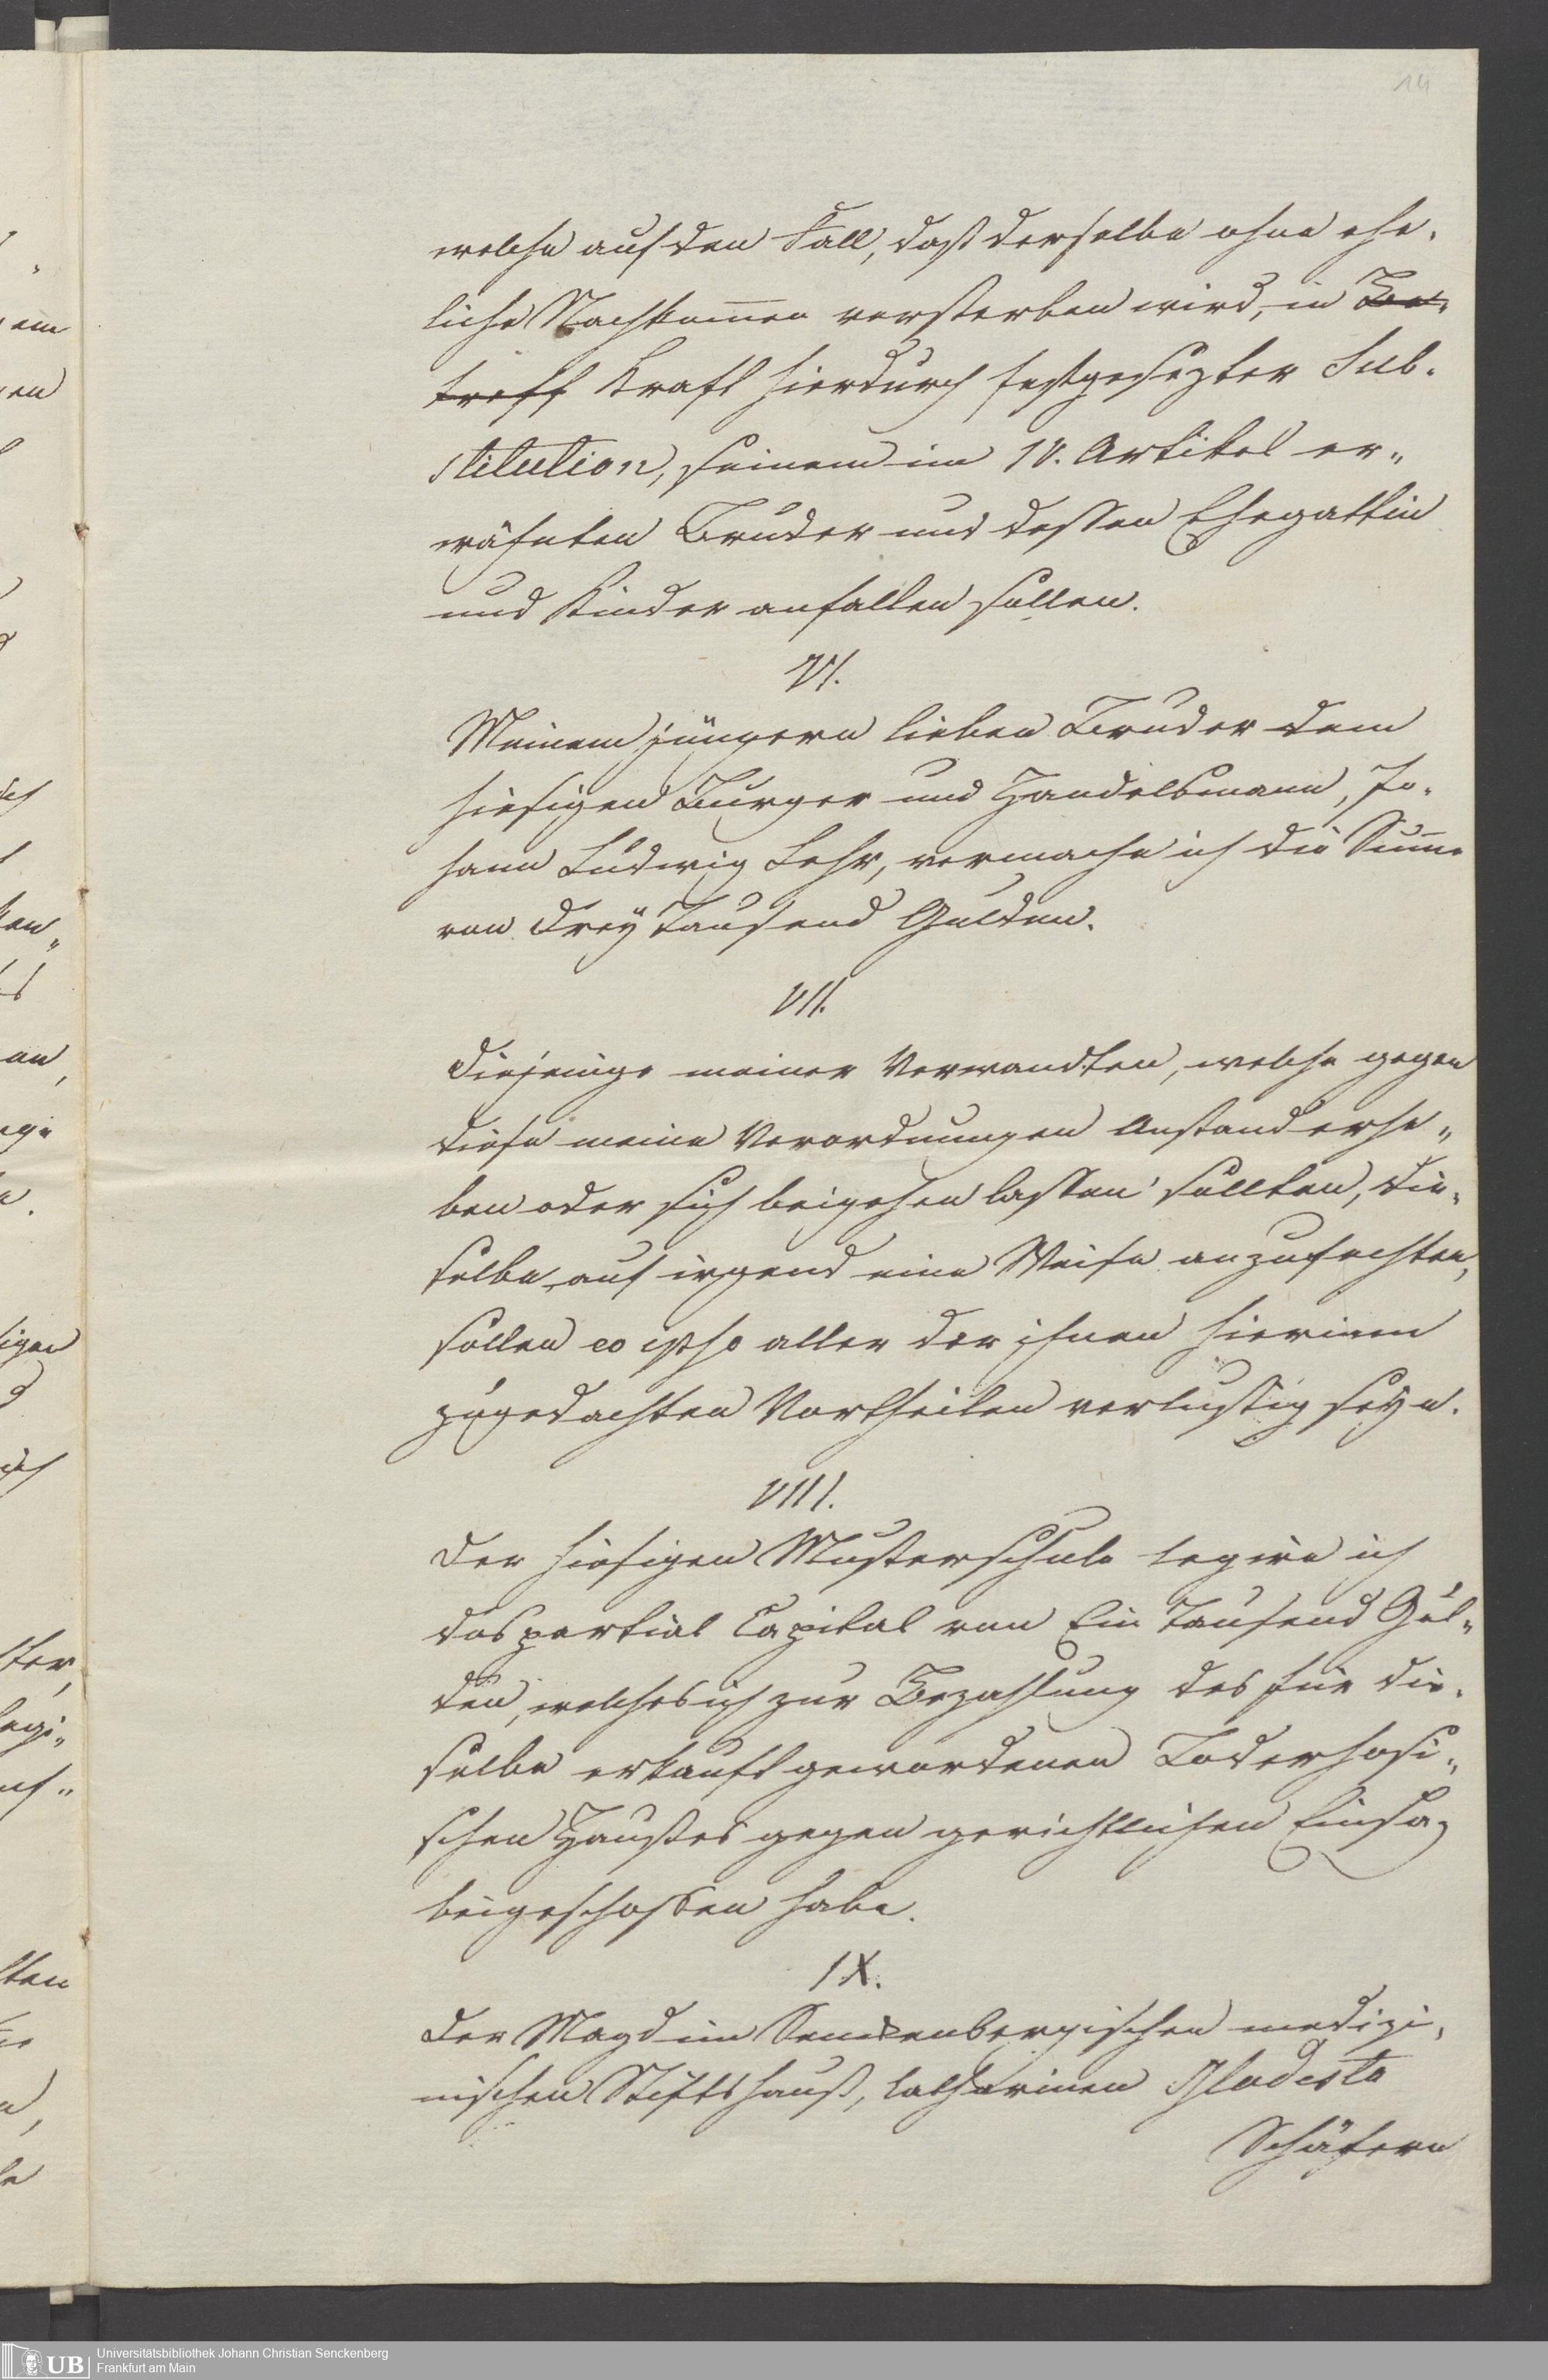 14
welche auf den Fall, daß derselbe ohne ehe-
liche Nachkommen versterben wird, in Be-
treff Kraft hierdurch festgesezter Sub-
stitution, seinem im IV. Artikel er-
wähnten Bruder und dessen Ehegattin
und Kinder anfallen sollen.
VI.
Meinem jüngern lieben Bruder dem
hiesigen Burger und Handelsmann, Jo-
hann Ludwig Lehr, vermache ich die Summe
von Drey Tausend Gulden.
VII.
Diejenige meiner Verwandten, welche gegen
diese meine Verordnungen Anstand erhe-
ben oder sich beigehen lassen sollten, die-
selbe auf irgend eine Weise anzufechten,
sollen eo ipso aller der ihnen hierinnen
zugedachten Vortheilen verlustig seyn.
VIII.
Der hiesigen Musterschule legire ich
das partial Capital von Ein Tausend Gul-
den, welches ich zur Bezahlung des für die-
selbe erkauft gewordenen
schen Haußes gegen gerichtlichen Einsaz
beigeschossen habe.
IX.
Der Magd im Senckenbergischen medizi-
nischen Stiftshauß, Catharinen Modesta
Schäfern
Universitätsbibliothek Johann Christian Senckenberg
UB Frankfurt am Main